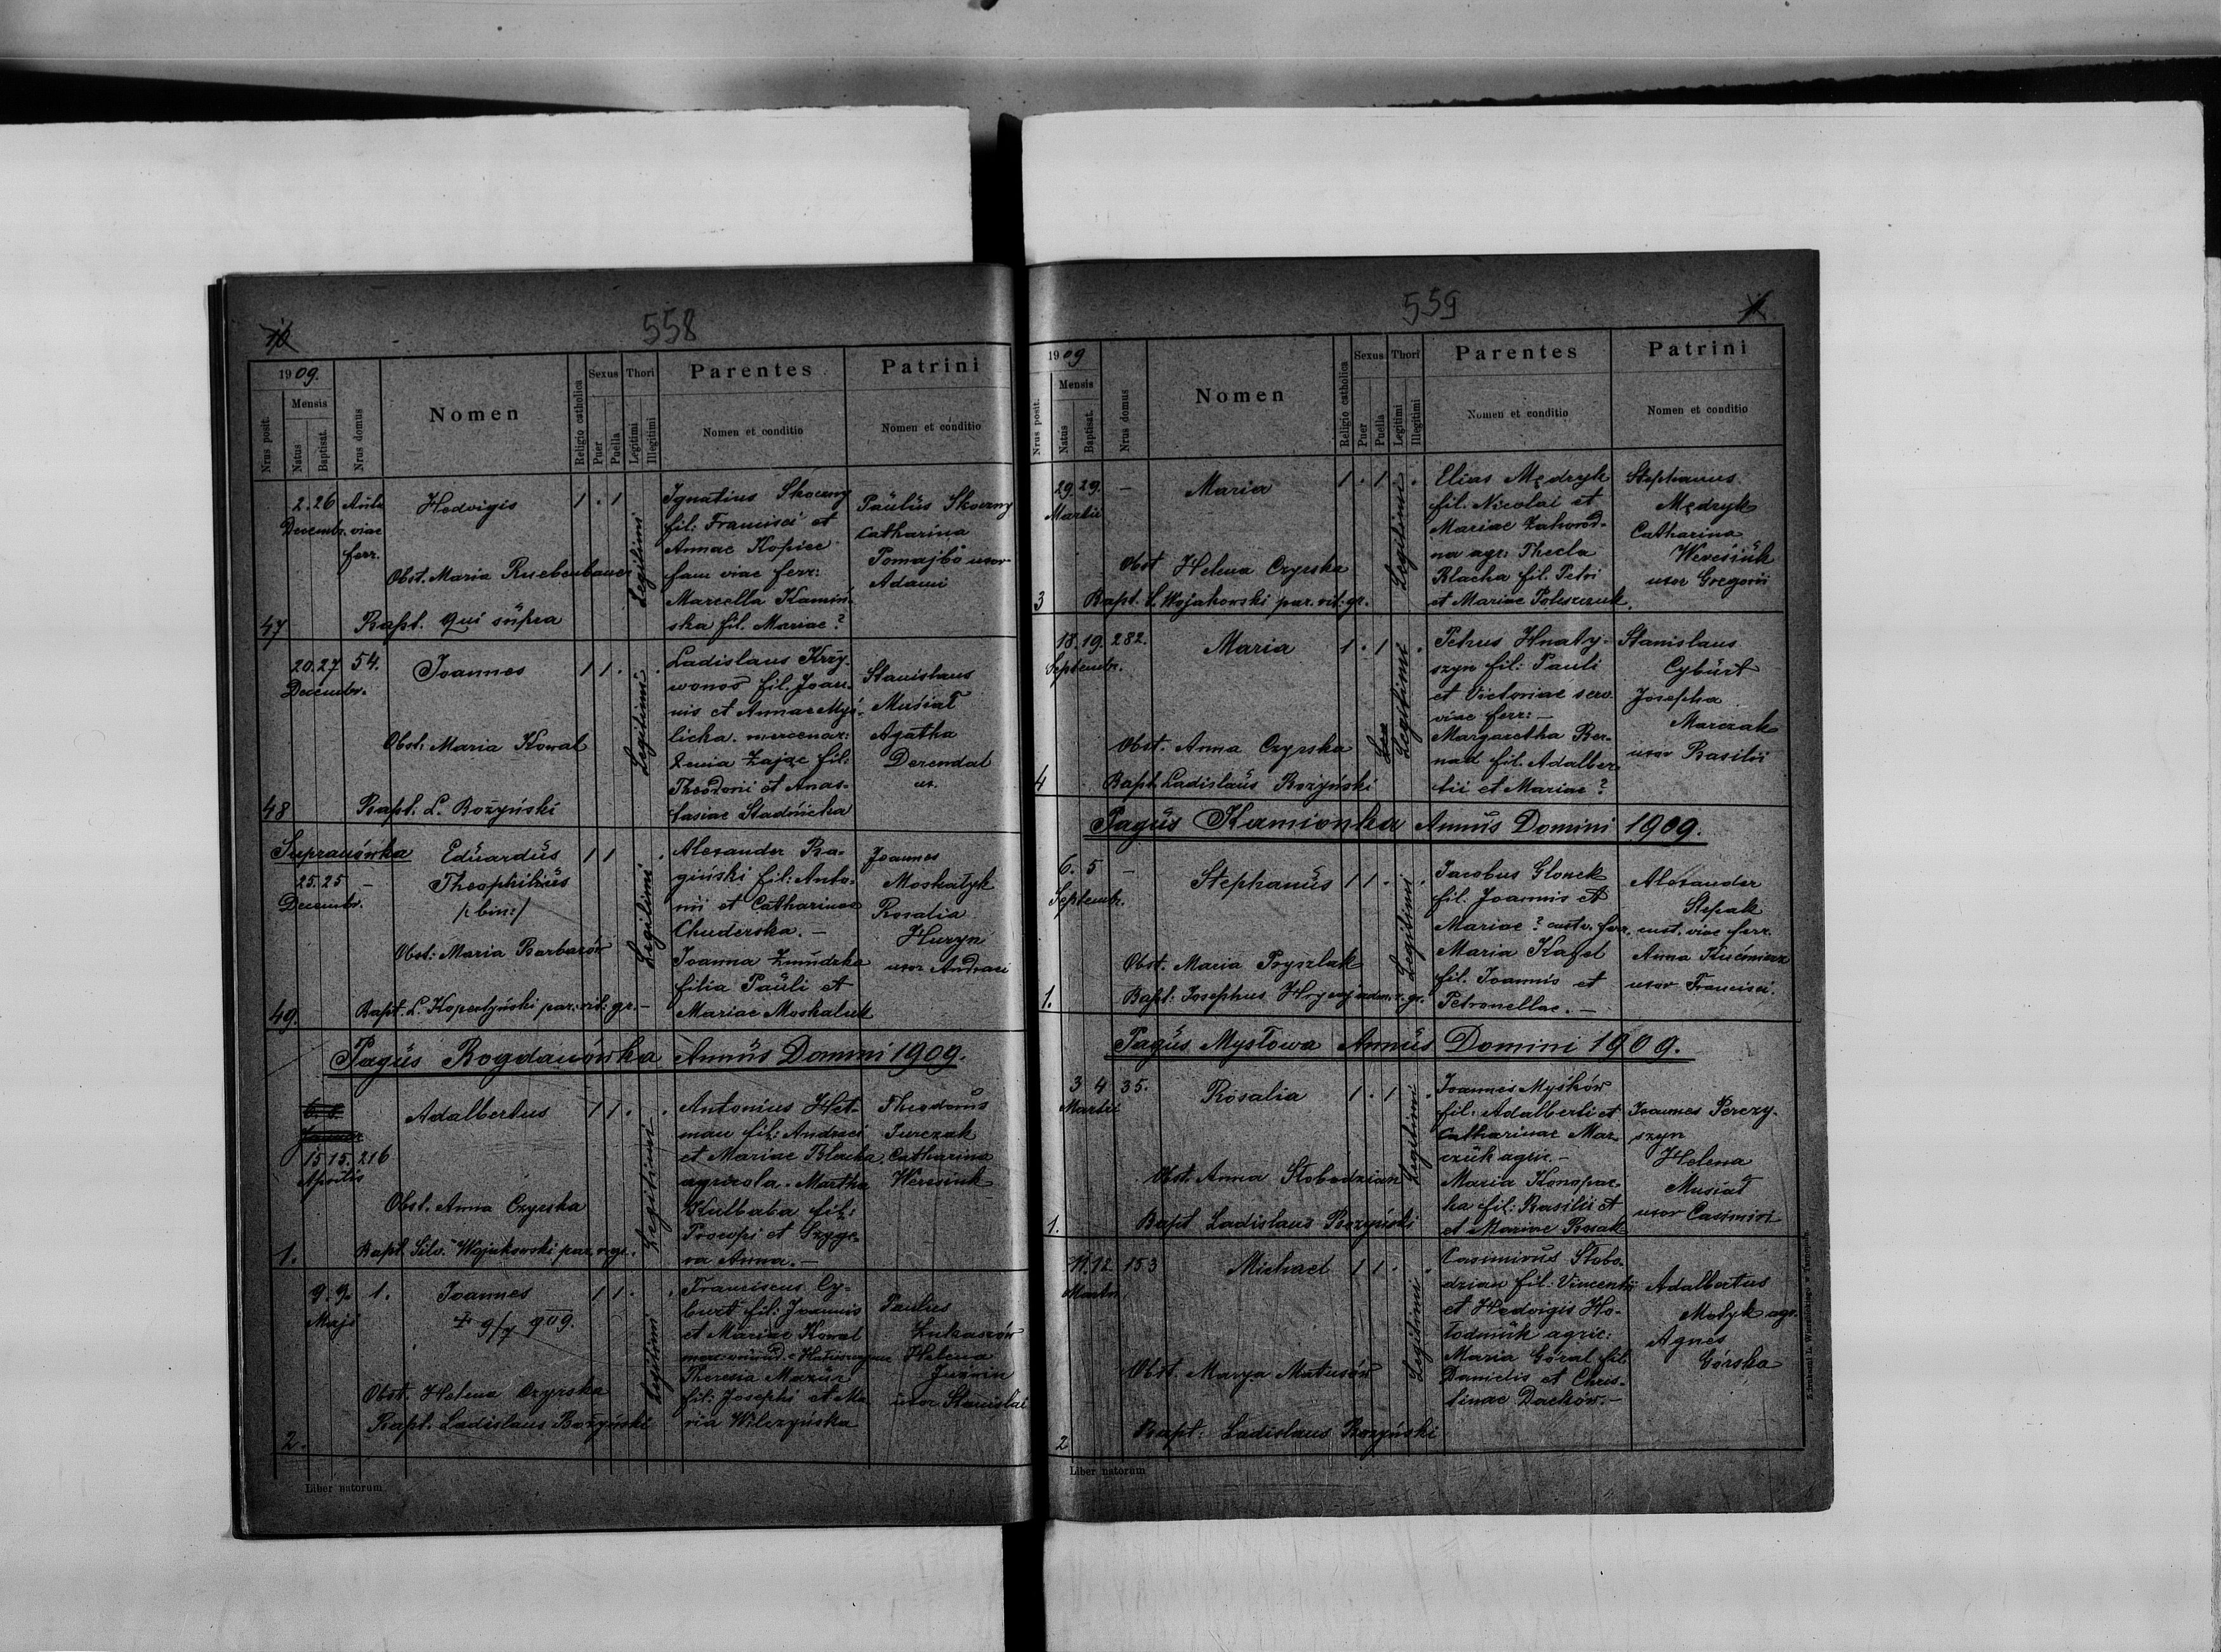 558
1909.
Nrus posit.
Mensis
Natus
Baptisat.
Nrus domus
Nomen
Religio catholica
Sexus
Puer
Puella
Thori
Legitimi
Illegitimi
Parentes
Nomen et conditio
Patrini
Nomen et conditio
47
2. 26
Decembr. viae
ferr.
Hedvigis
1 . 1
Obst. Maria Ruebenbauer
Bapt. qui supra
Legitimi
Ignatius Skoczny
fil: Francisci et
Annae Kopiec
fam viae ferr:
Marcella Kamiń-
ska fil. Mariae ?
Paulus Skoczny
Catharina
Pomajbo uxor
Adami
48
20. 27 54.
Decembr.
Joannes
1 1 . .
Obst. Maria Kowal
Bapt. L. Bożyński
Legitimi
Ladislaus Krzy-
wonos fil. Joan-
nis et Annae Myś-
licka. mercenar:
Zając fil:
Theodorii et Anas-
tasiae Stadnicka
Stanislaus
Musiał
Agatha
Derendal
ux.
49.
Supranówka
25. 25 -
Decembr.
Eduardus
Theophilus
/: bin :/
1 1 .
Obst: Maria Barbarów
Bapt. L. Kopertyński par. rit: gr. -
Legitimi
Alexander Ba-
giński fil: Anto-
nii et Catharinae
Chuderska. -
Joanna Żmudzka
filia Pauli et
Mariae Moskaluk
Joannes
Moskalyk
Rosalia
Huryn
uxor Andreae
Pagus Bogdanówka Annus Domini 1909.
1.
15. 15. 216
Aprilis
Adalbertus
1 1 . .
Obst. Anna Czyrska
Bapt. Silv. Wojakowski par. r. gr.
Legitimi
Antonius Het-
man fil: Andreae
et Mariae Blacha
agricola. Martha
Kulbaba fil:
Procopi et
Anna. -
Theodorus
Jurczak
Catharina
Weresiuk
2.
9. 9. 1.
Maji
Joannes
9/7 909.
1 1 . .
Obst. Helena Czyrska
Bapt. Ladislaus Bożyński
Legitimi
Franciscus Cy-
burt fil: Joannis
et Mariae Kowal
Theresia Mazur
fil: Josephi et Ma
ria Wilczyńska
Paulus
Łukaszów
Helena
uxor Stanislai
Liber natorum
559
1909
Nrus posit.
Mensis
Natus
Baptisat.
Nrus domus
Nomen
Religio catholica
Sexus
Puer
Puella
Thori
Legitimi
Illegitimi
Parentes
Nomen et conditio
Patrini
Nomen et conditio
3
29. 29. -
Martii
Maria
1 . 1 .
Obst Helena Czyrska
Bapt. S. Wojakowski par. rit: gr.
Legitimi
Elias Mędryk
fil. Nicolai et
Mariae Zahorod-
na agr: Thecla
Blacha fil. Petri
et Mariae Poleszczuk.
Stephanus
Mędryk
Catharina
Weresiuk
uxor Gregorii
4
18. 19. 282.
Septembr.
Maria
1 . 1 .
Obst. Anna Czyrska
Bapt. Ladislaus Bożyński
Legitimi
Petrus Hnaty-
szyn fil: Pauli
et Victoriae serv.
viae ferr: -
Margaretha Ber-
nad fil. Adalber
tii et Mariae ?
Stanislaus
Cyburt
Josepha
Marczak
uxor Basilii
Pagus Kamionka Annus Domini 1909.
1.
6. 5 -
Septembr.
Stephanus
1 1 . .
Obst. Maria Pryszlak
Bapt: Josephus r. gr.
Legitimi
Jacobus Glonek
fil. Joannis et
Mariae ? custv. ferr.
Maria Kafel
fil. Joannis et
Petronellae. -
Alexander
Stepak
cust. viae ferr.
Anna Kuśmierz
uxor Francisci.
Pagus Mysłowa Annus Domini 1909.
1.
3 4 35.
Martii
Rosalia
1 . 1 .
Obst. Anna Słobodzian
Bapt Ladislaus Bożyński
Legitimi
Joannes Myśków
fil: Adalberti et
Catharinae Mar-
czuk agric. -
Maria Konopac-
ka fil: Basilii et
et Mariae Bosak
Joannes Perczy-
szyn
Helena
Musiał
uxor Casimiri
2
11. 12. 153
Martii
Michael
1 1 . .
Obst. Marya Matusów
Bapt: Ladislaus Bożyński
Legitimi
Casimirus Słobo-
dzian fil: Vincentii
et Hedvigis Ho-
łodniuk agric:
Maria Góral fil.
Danielis et Chris-
tinae Dacków. -
Adalbertus
Matyk agr.
Agnes
Górska
Liber natorum